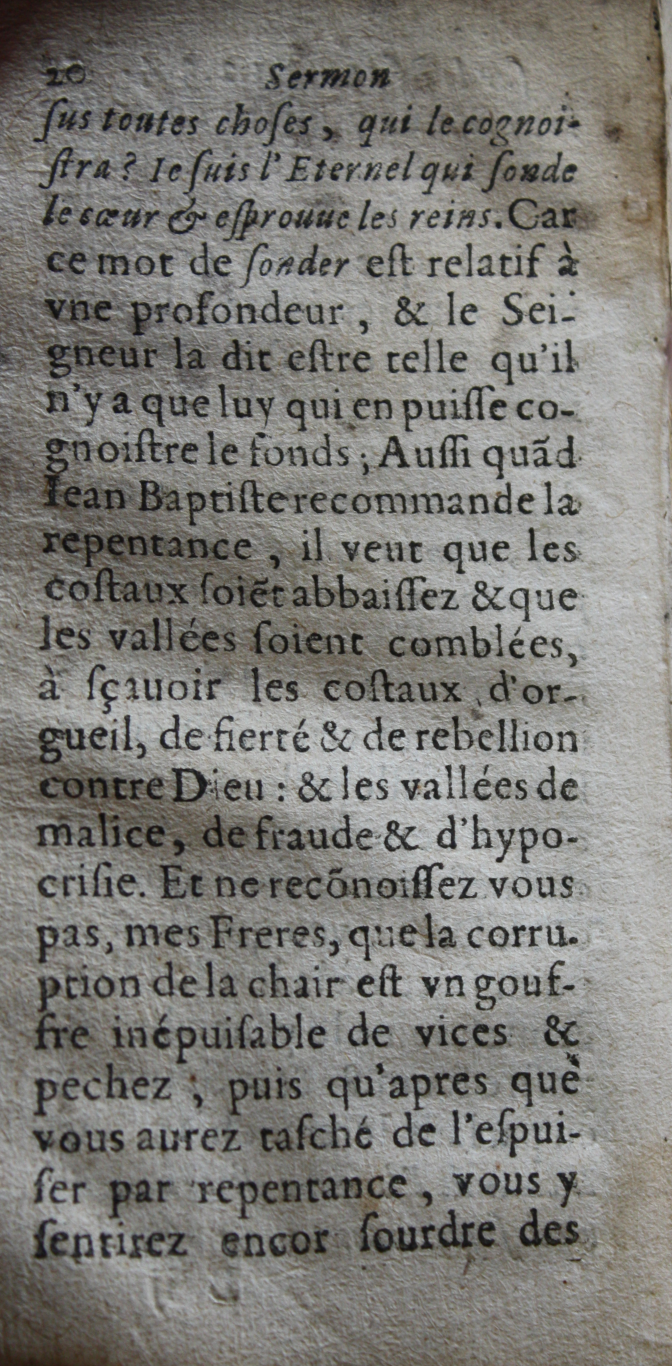 20 Sermon
ſus toutes choſes, qui le cognoi-
ſtra? Ie ſuis l'Eternel qui ſonde
le cœur & eſprouue les reins. Car
ce mot de ſonder eſt relatif à
vne profondeur, & le Sei-
gneur la dit eſtre telle qu'il
n'y a que luy qui en puiſſe co-
gnoiſtre le fonds; Auſſi quãd
Iean Baptiſte recommande la
repentance, il veut que les
coſtaux ſoiẽt abbaiſſez & que
les vallées ſoient comblées,
à ſçauoir les coſtaux d'or-
gueil, de fierté & de rebellion
contre Dieu: & les vallées de
malice, de fraude & d'hypo-
criſie. Et ne recõnoiſſez vous
pas, mes Freres, que la corru-
ption de la chair eſt vn gouf-
fre inépuiſable de vices &
pechez; puis qu'apres que
vous aurez taſché de l'eſpui-
ſer par repentance, vous y
ſentirez encor ſourdre des